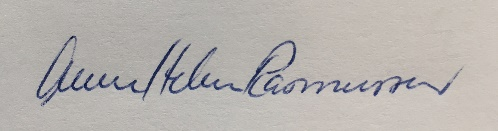 Anne Helen Rasmussen